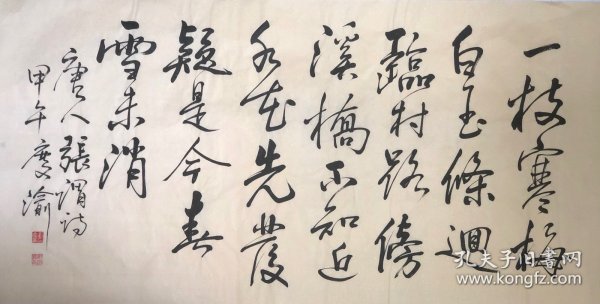 一枝寒梅
白玉條迥
臨村路傍
溪橋不知近
水花先發
疑是今春
雪未消
唐人張謂詩
甲午慶渝
孔夫子旧书网
www.kongfz.com